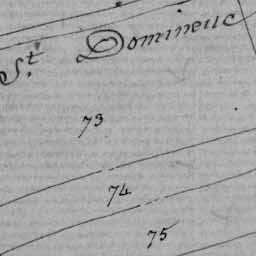 St. Domineuc
73
74
75